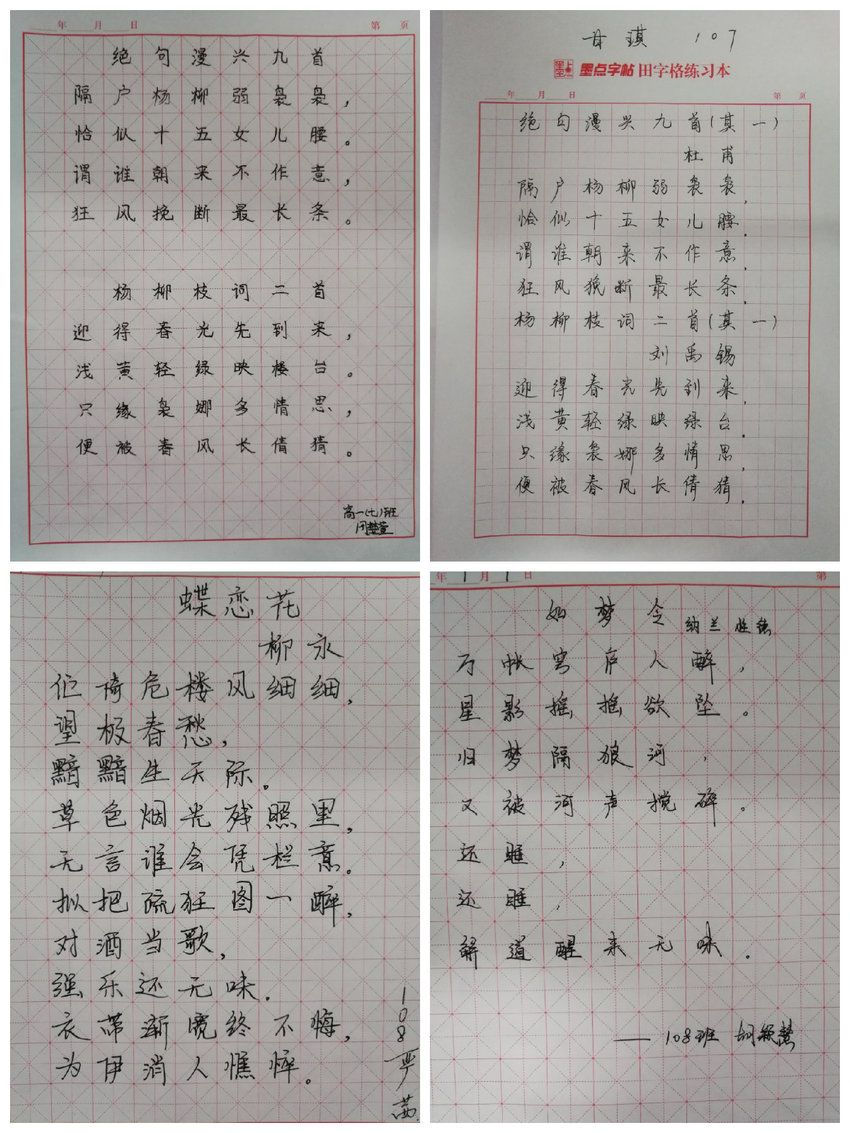 年 月 日 第 页
绝句漫兴九首
隔户杨柳弱袅袅，
恰似十五女儿腰。
谓谁朝来不作意，
狂风挽断最长条。
杨柳枝词二首
迎得春光先到来，
浅黄轻绿映楼台。
只缘袅娜多情思，
便被春风长倩猜。
高一(七)班
甘琪 107
墨点字帖 田字格练习本
年 月 日 第 页
绝句漫兴九首(其一)
杜甫
隔户杨柳弱袅袅，
恰似十五女儿腰。
谓谁朝来不作意，
狂风挽断最长条，
杨柳枝词二首(其一)
刘禹锡
迎得春光先到来，
浅黄轻绿映绿台.
只缘袅娜多情思，
便被春风长倩猜，
蝶恋花
柳永
伫倚危楼风细细，
望极春愁，
黯黯生天际。
草色烟光残照里，
无言谁会凭栏意。
拟把疏狂图一醉，
对酒当歌，
强乐还无味.
衣带渐宽终不悔，
为伊消人憔悴。
108 严茜
年 1 月 1 日 第
如梦令 纳兰性德
万帐穹庐人醉，
星影摇摇欲坠。
归梦隔狼河，
又被河声搅碎。
还睡，
还睡，
解道醒来无味。
——108班 胡颖慧